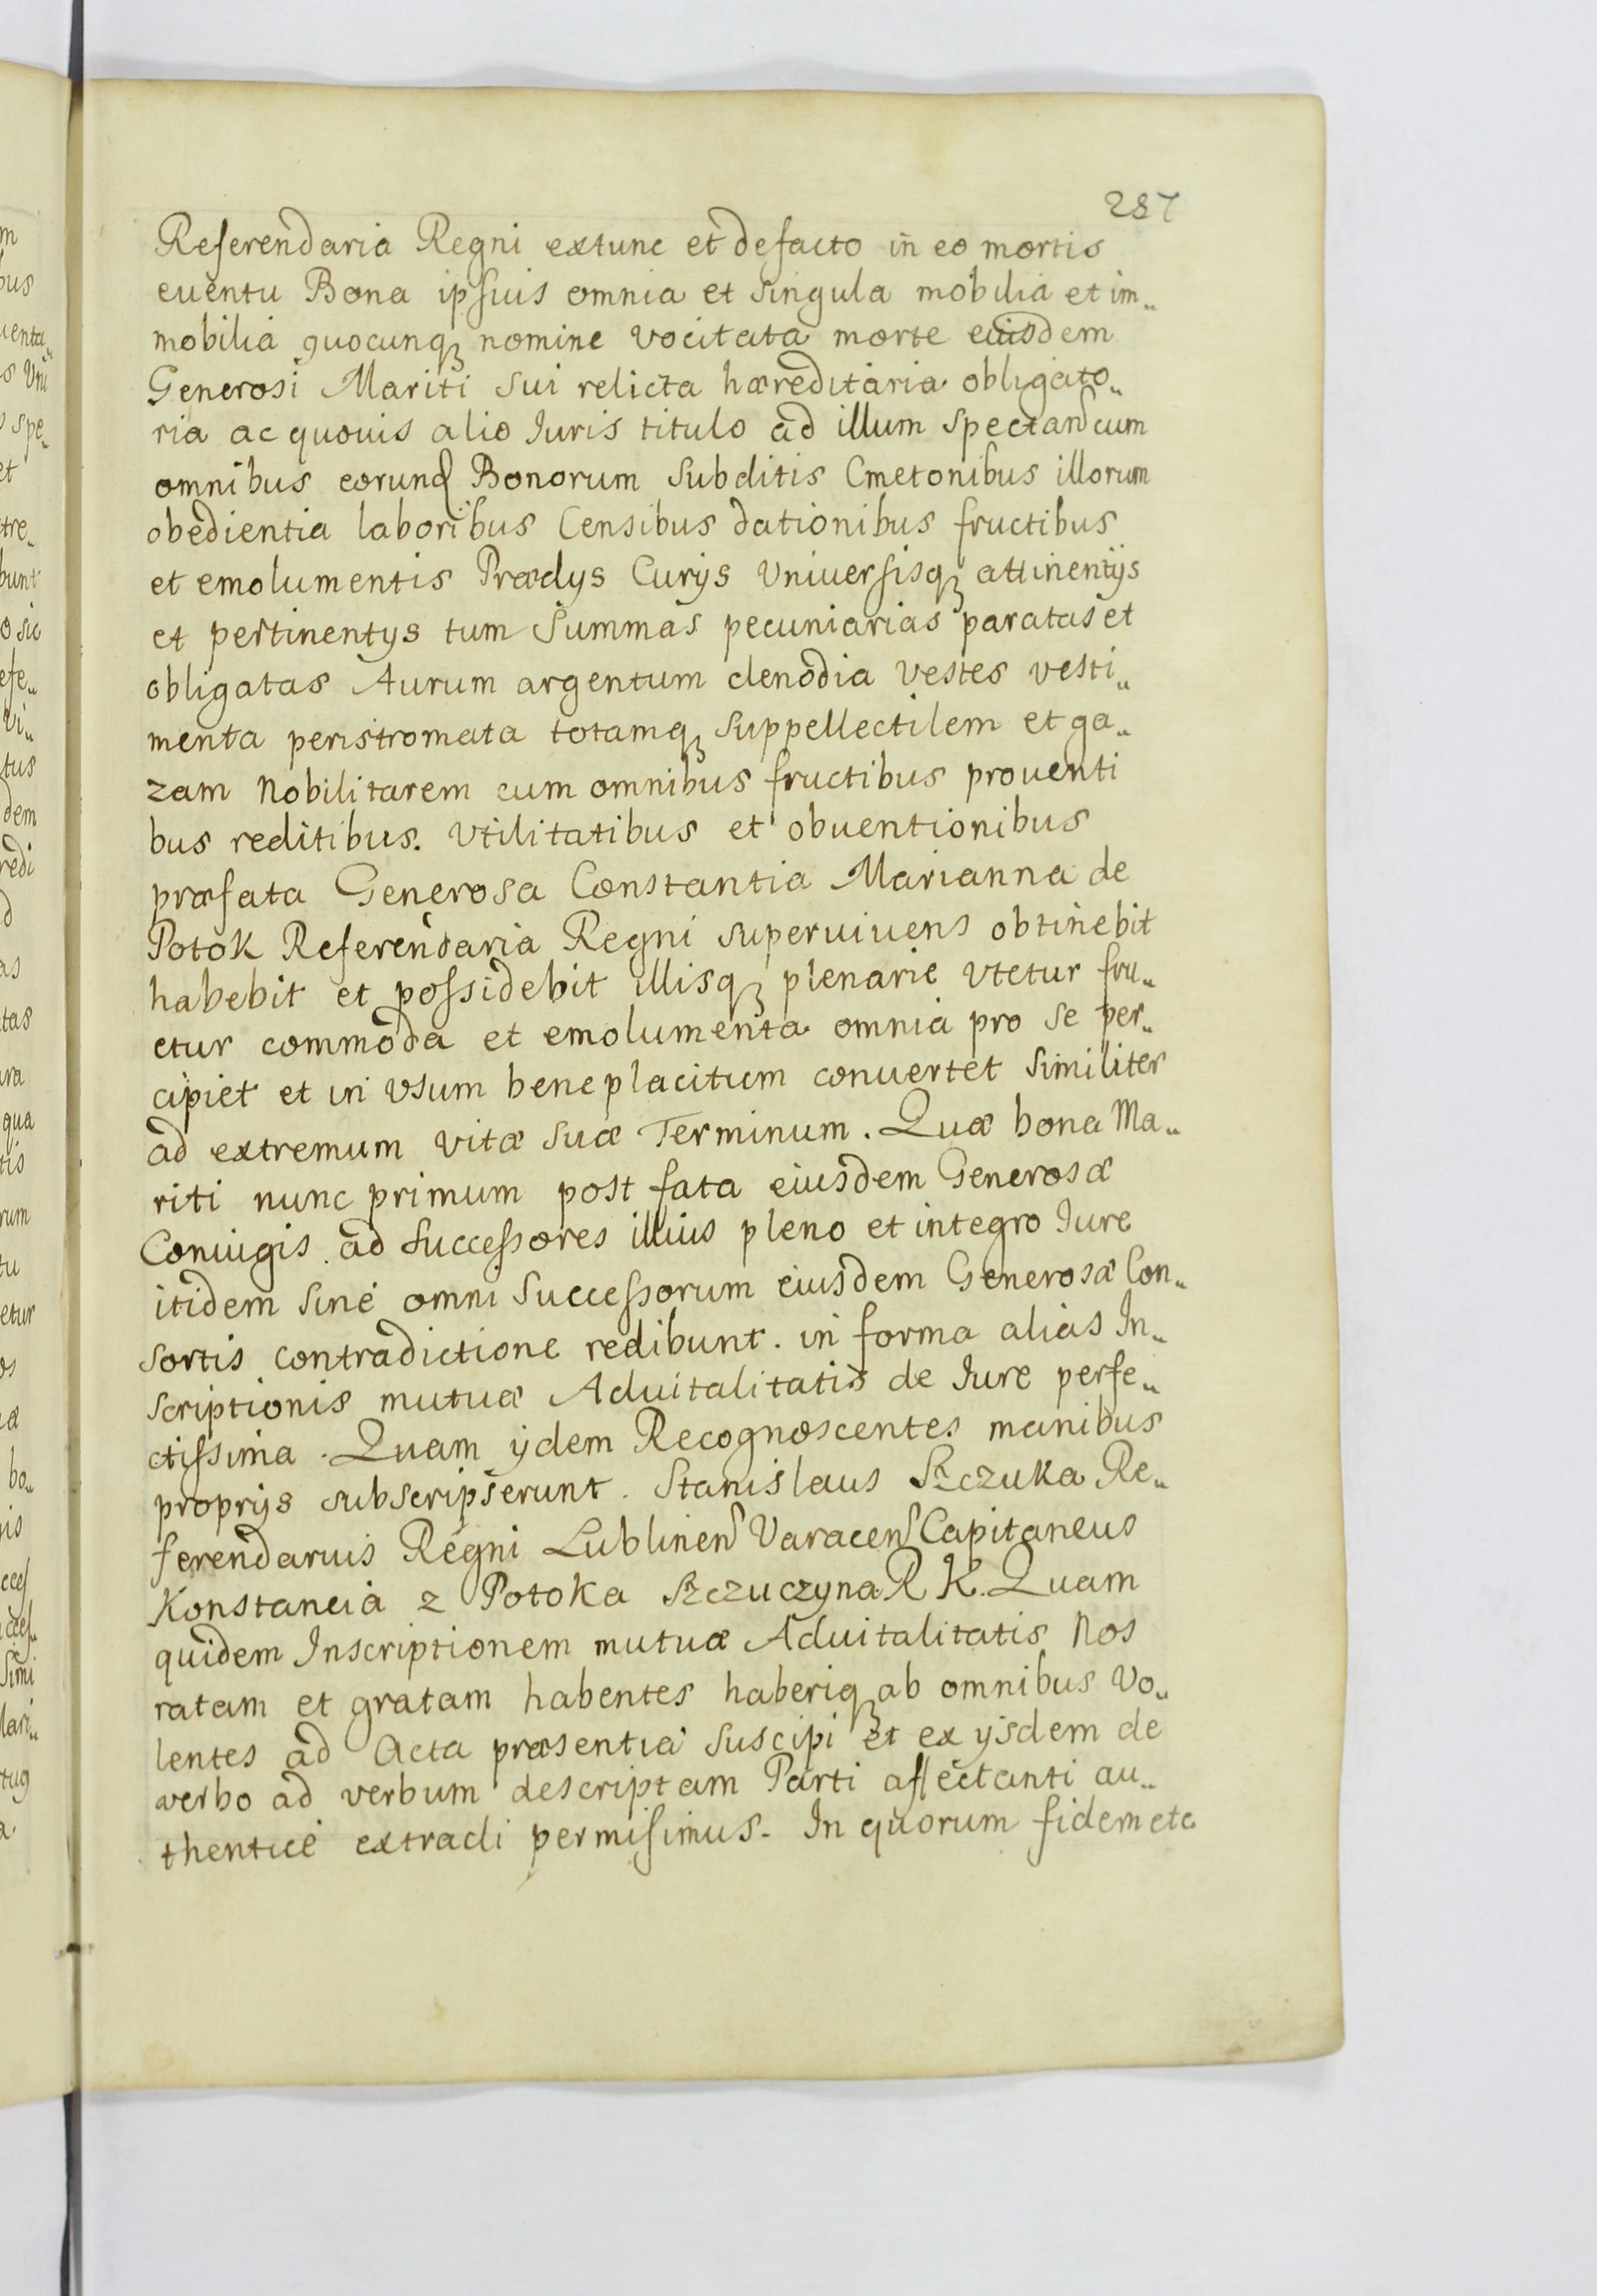 287
Referendaria Regni extunc et defacto in eo mortis
euentu Bona ipsius omnia et singula mobilia et im„
mobilia quocunqꝫ nomine vocitata morte eiusdem
Generosi Mariti sui relicta hæreditaria obligato„
ria ac quouis alio Iuris titulo ad illum spectan cum
omnibus eorund Bonorum subditis Cmetonibus illorum
obedientia laboribus Censibus dationibus fructibus
et emolumentis Prædys Curijs Vniuersisqꝫ attinentijs
et pertinentys tum Summas pecuniarias paratas et
obligatas Aurum argentum clenodia vestes vesti„
menta peristromata totamqꝫ suppellectilem et ga„
zam Nobilitarem cum omnibus fructibus prouenti
bus reditibus. vtilitatibus et obuentionibus
præfata Generosa Constantia Marianna de
Potok Referendaria Regni superuiuens obtinebit
habebit et possidebit illisqꝫ plenarie vtetur fru„
etur commoda et emolumenta omnia pro se per„
cipiet et in vsum beneplacitum conuertet similiter
ad extremum vitæ suæ Terminum. Quæ bona Ma„
riti nunc primum post fata eiusdem Generosæ
Coniugis ad successores illius pleno et integro Iure
itidem sine omni Successorum eiusdem Generosæ Con„
sortis contradictione redibunt. in forma alias In„
scriptionis mutuæ Aduitalitatis de Iure perfe„
ctissima. Quam ijdem Recognoscentes manibus
proprijs subscripserunt. Stanislaus Szczuka Re„
ferendarius Regni Lublinen Varacen Capitaneus
Konstancia z Potoka Szczuczyna R K. Quam
quidem Inscriptionem mutuæ Aduitalitatis Nos
ratam et gratam habentes haberiqꝫ ab omnibus Vo„
lentes ad Acta præsentia suscipi et ex ijsdem de
verbo ad verbum descriptam Parti affectanti au„
thentice extradi permisimus. In quorum fidem etc